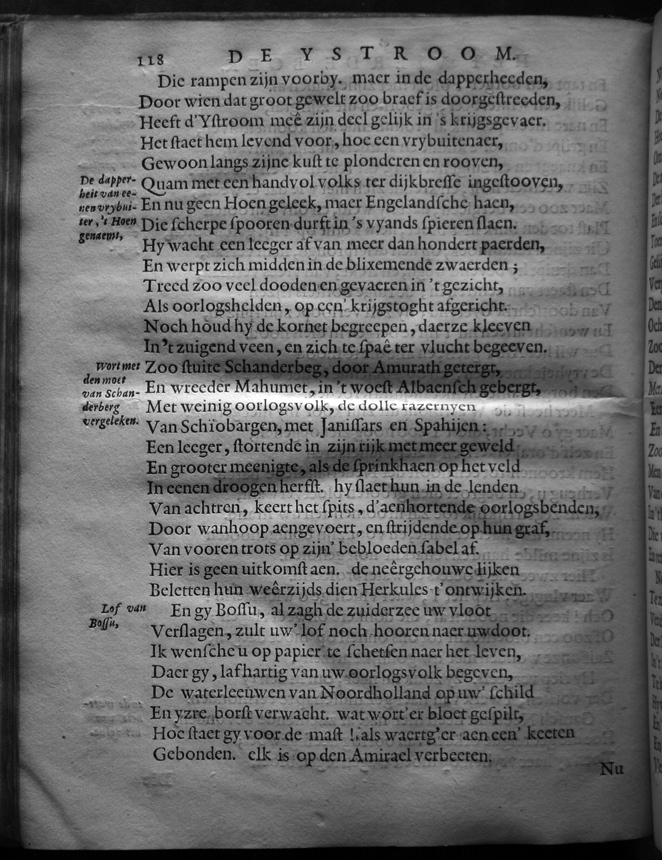 118 DE YSTROOM.
Die rampen zijn voorby. maer in de dapperheeden,
Door wien dat groot gewelt zoo braef is doorgeſtreeden,
Heeft d'Yſtroom meê zijn deel gelijk in 's krijgsgevaer.
Het ſtaet hem levend voor, hoe een vrybuitenaer,
Gewoon langs zijne kuſt te plonderen en rooven,
De dapper-
heit van ee-
nen vrybui-
ter, 't Hoen
genaemt,
Quam met een handvol volks ter dijkbreſſe ingeſtooven,
En nu geen Hoen geleek, maer Engelandſche haen,
Die ſcherpe ſpooren durft in 's vyands ſpieren ſlaen.
Hy wacht een leeger af van meer dan hondert paerden,
En werpt zich midden in de blixemende zwaerden;
Treed zoo veel dooden en gevaeren in 't gezicht,
Als oorlogshelden, op een' krijgstoght afgericht.
Noch houd hy de kornet begreepen, daerze kleeven
In 't zuigend veen, en zich te ſpaê ter vlucht begeeven.
Wort met
den moet
van Schan-
derberg
vergeleken.
Zoo ſtuite Schanderbeg, door Amurath getergt,
En wreeder Mahumet, in 't woeſt Albaenſch gebergt,
Met weinig oorlogsvolk, de dolle razernyen
Van Schiobargen, met Janiſſars en Spahijen:
Een leeger, ſtortende in zijn rijk met meer geweld
En grooter meenigte, als de ſprinkhaen op het veld
In eenen droogen herfſt. hy ſlaet hun in de lenden
Van achtren, keert het ſpits, d'aenhortende oorlogsbenden,
Door wanhoop aengevoert, en ſtrijdende op hun graf,
Van vooren trots op zijn' bebloeden ſabel af.
Hier is geen uitkomſt aen. de neêrgehouwe lijken
Beletten hun weêrzijds dien Herkules t'ontwijken.
Lof van
Boſſu,
En gy Boſſu, al zagh de zuiderzee uw vloot
Verſlagen, zult uw' lof noch hooren naer uw doot.
Ik wenſche u op papier te ſchetſen naer het leven,
Daer gy, lafhartig van uw oorlogsvolk begeven,
De waterleeuwen van Noordholland op uw' ſchild
En yzre borſt verwacht. wat wort'er bloet geſpilt,
Hoe ſtaet gy voor de maſt! als waertg'er aen een' keeten
Gebonden. elk is op den Amirael verbeeten.
Nu